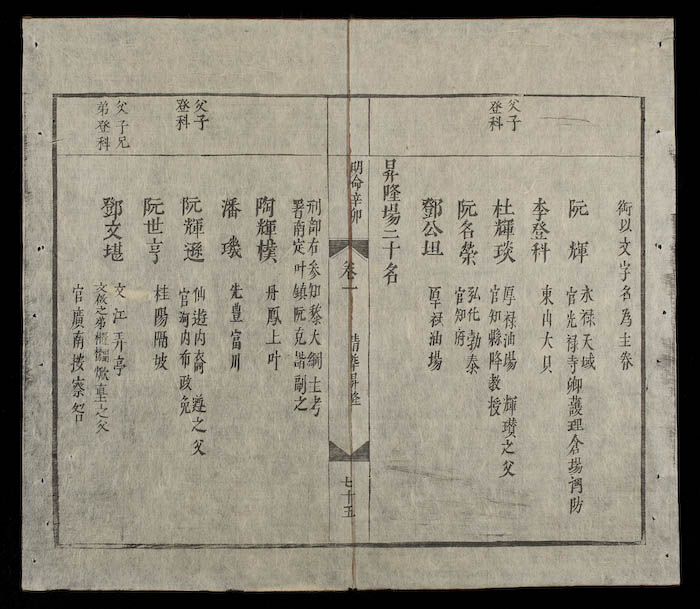 以文字名為主
阮輝
永禄天域
官光禄寺卿護理倉場防
李登科
東山大貝
父子
登科
杜輝琰
厚禄油場 輝瓚之父
官知縣降教授
阮名榮
弘化勃泰
官知府
鄧公坦
厚禄油場
昇隆場二十名
明命辛卯
卷一
清華昇隆
七十五
刑部右參知黎大綱主考
署南定叶鎮阮克諧副之
陶輝樸
丹鳳上叶
潘璣
先豊富川
父子
登科
阮輝遜
仙遊内裔 遵之父
官河内布政免
阮世亨
桂陽隔坡
父子兄
弟登科
鄧文堪
文江弄亭
之弟之父
官廣南按察